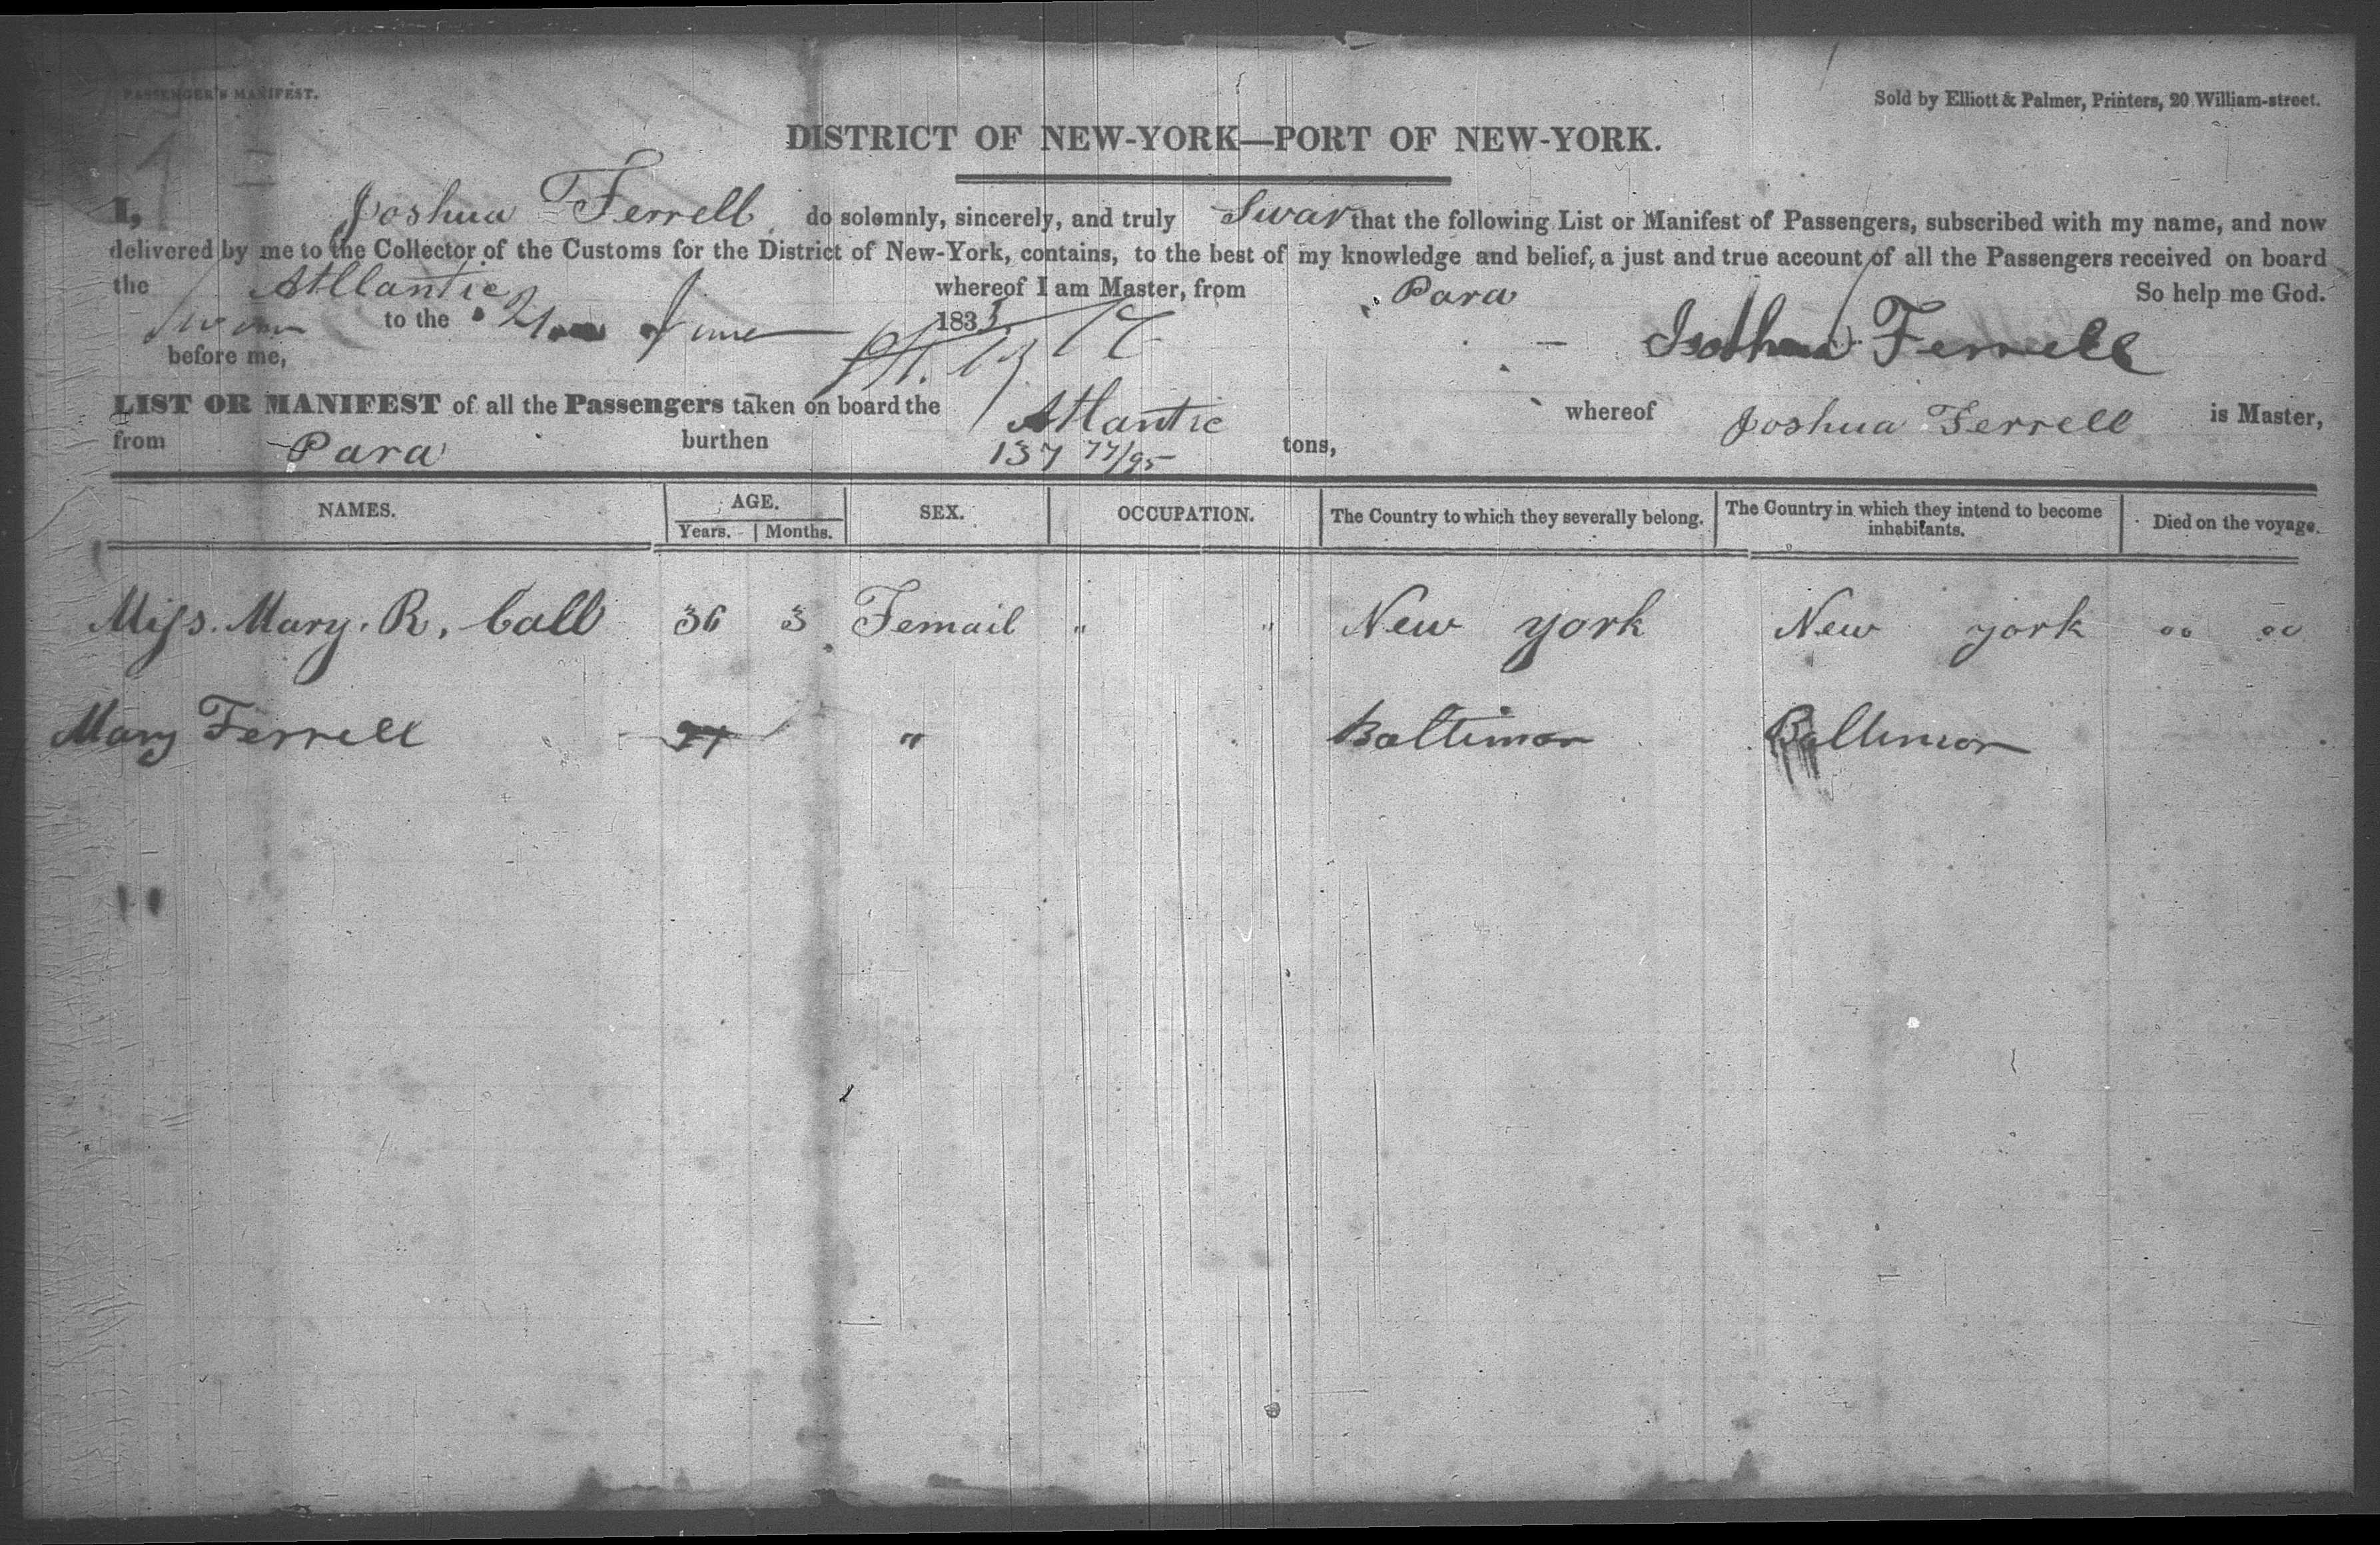 PASSENGER'S MANIFEST.
Sold by Elliott & Palmer, Printers, 20 William-street.
DISTRICT OF NEW-YORK—PORT OF NEW-YORK.
I, Joshua Ferrell do solemnly, sincerely, and truly Swar that the following List or Manifest of Passengers, subscribed with my name, and now
delivered by me to the Collector of the Customs for the District of New-York, contains, to the best of my knowledge and belief, a just and true account of all the Passengers received on board
the Atlantic whereof I am Master, from Para So help me God.
Sworn to the 21 June 1833 Joshua Ferrell
before me,
LIST OR MANIFEST of all the Passengers taken on board the Atlantic whereof Joshua Ferrell is Master,
from Para burthen 137 77/95 tons,
NAMES. AGE. SEX. OCCUPATION. The Country to which they severally belong. The Country in which they intend to become inhabitants. Died on the voyage.
Years. Months.
Miss. Mary. R. Call 36 3 Femail " " New york New york " "
Mary Ferrell 21 " Baltimor Baltimor